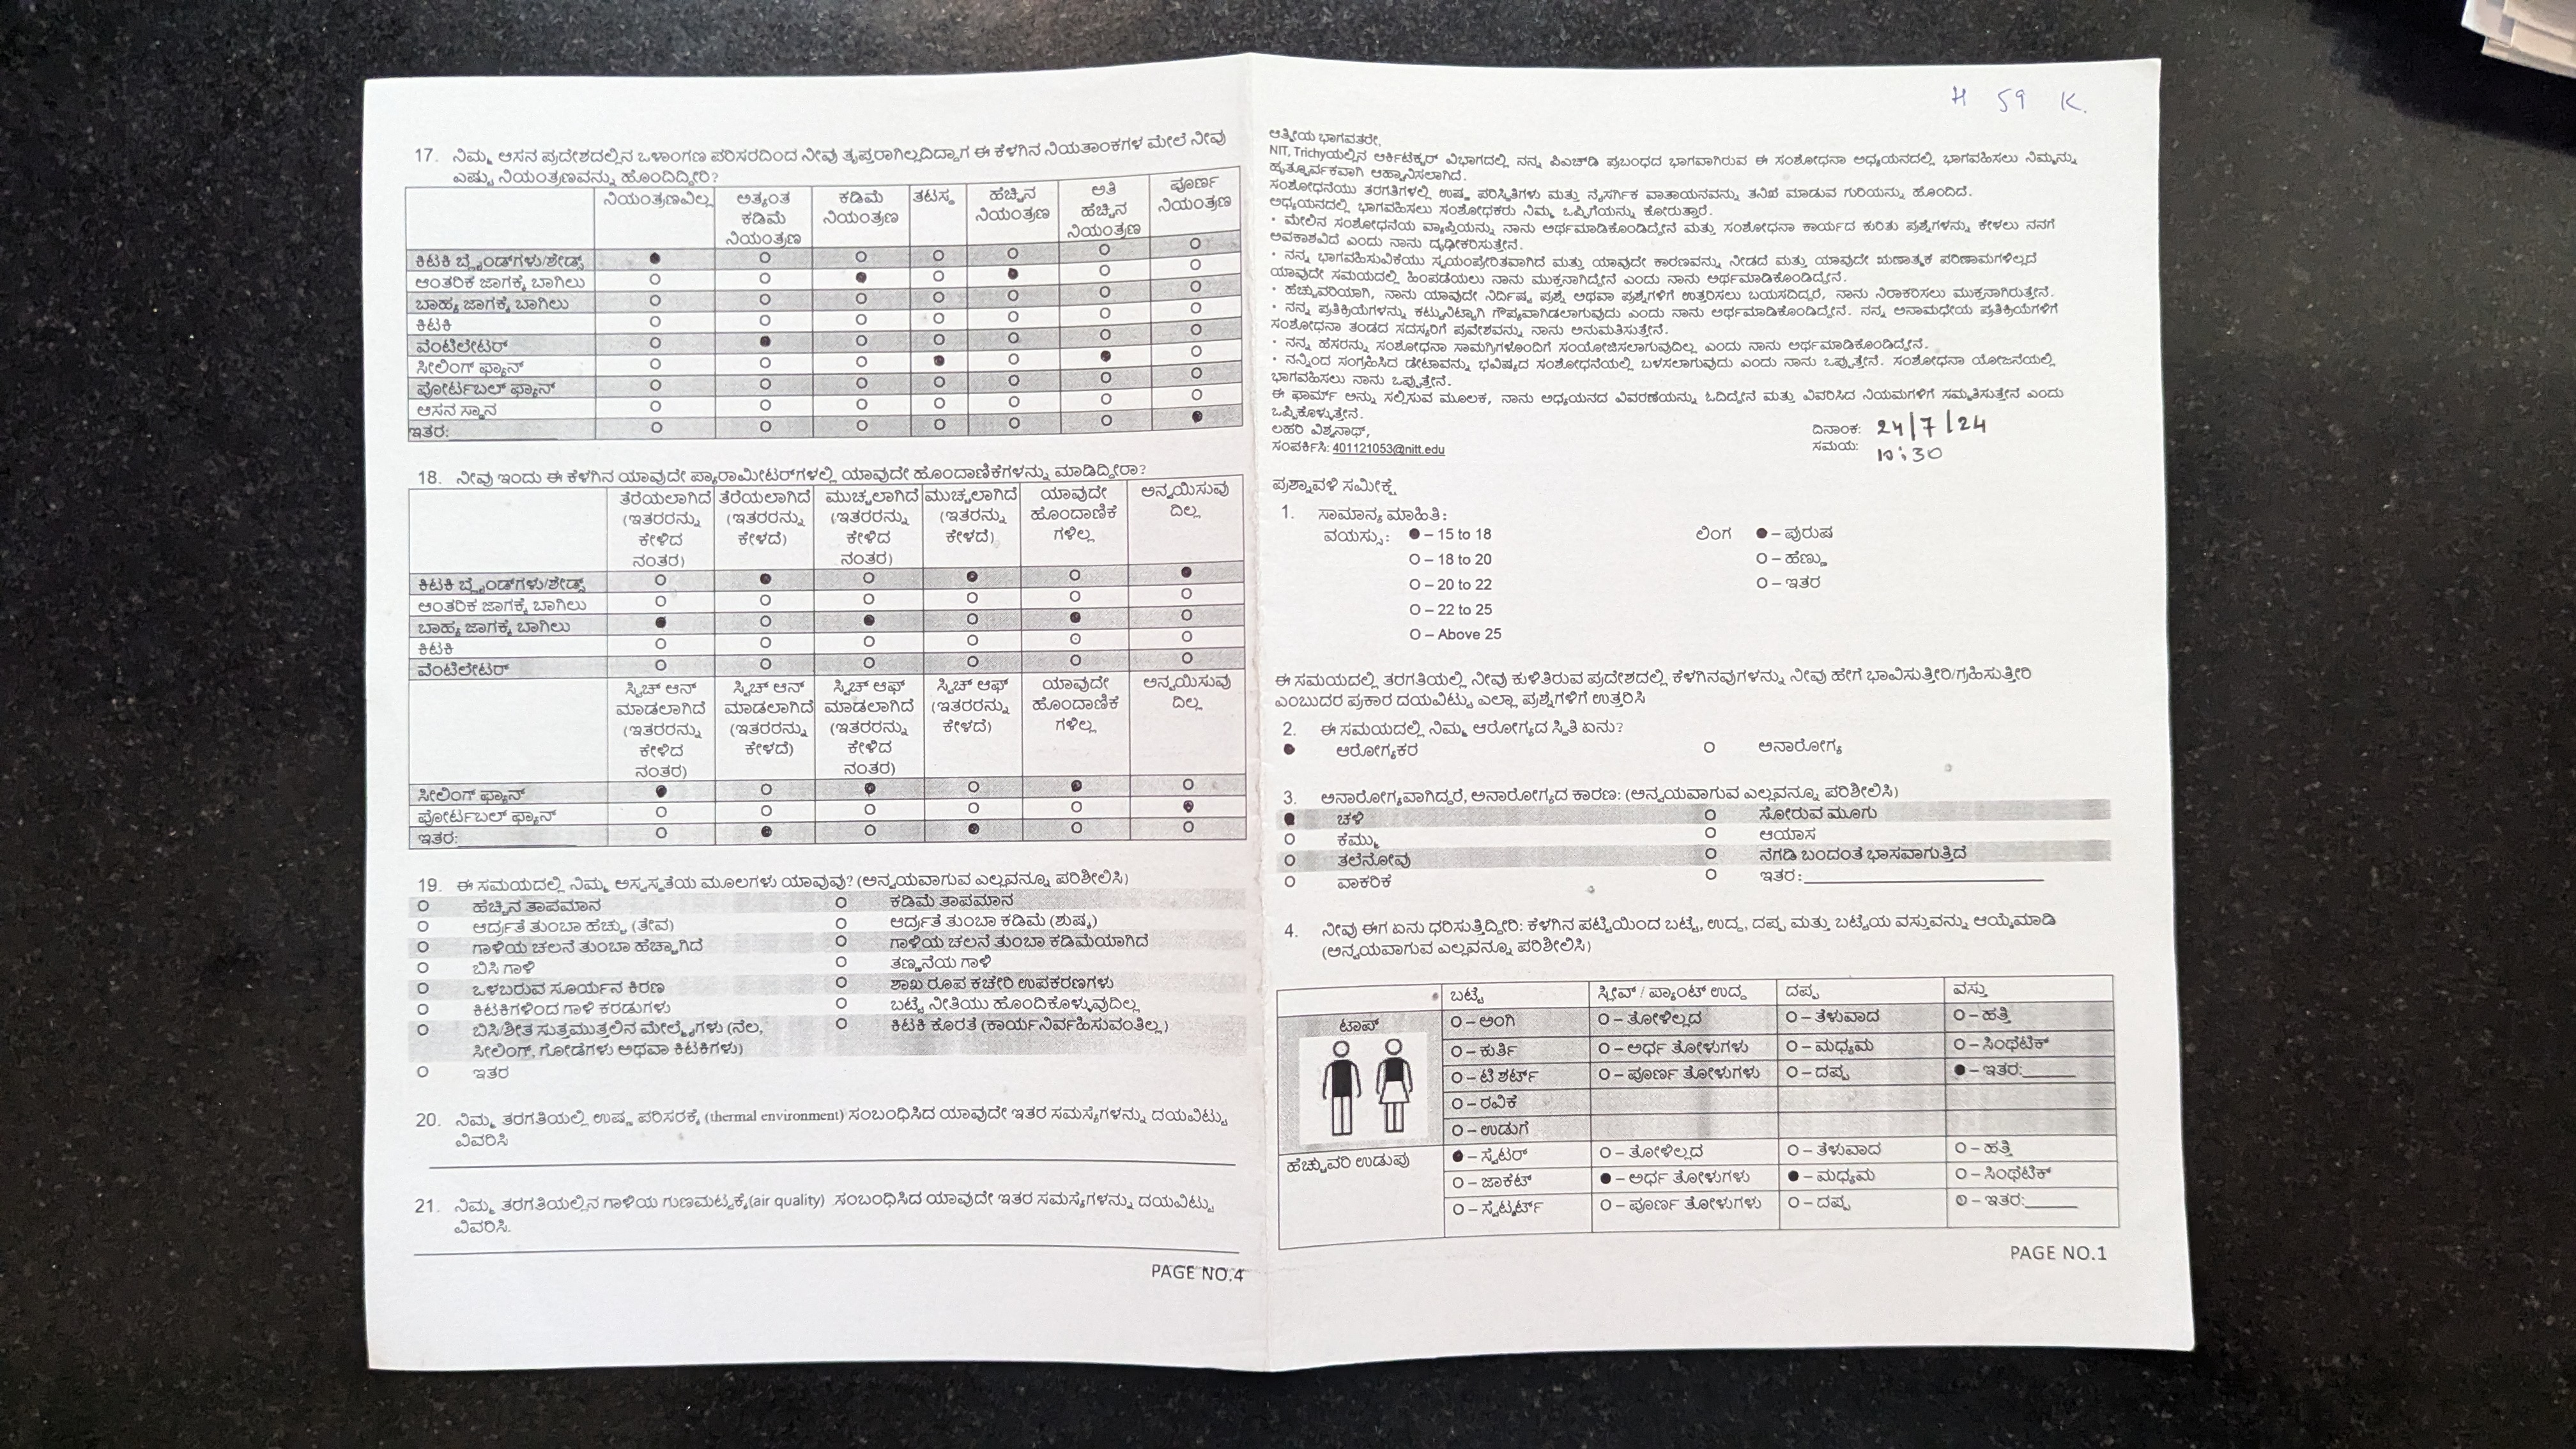 17. ನಿಮ್ಮ ಆಸನ ಪ್ರದೇಶದಲ್ಲಿನ ಒಳಾಂಗಣ ಪರಿಸರದಿಂದ ನೀವು ತೃಪ್ತರಾಗಿಲ್ಲದಿದ್ದಾಗ ಈ ಕೆಳಗಿನ ನಿಯತಾಂಕಗಳ ಮೇಲೆ ನೀವು
ಎಷ್ಟು ನಿಯಂತ್ರಣವನ್ನು ಹೊಂದಿದ್ದೀರಿ?
ನಿಯಂತ್ರಣವಿಲ್ಲ ಅತ್ಯಂತ ಕಡಿಮೆ ನಿಯಂತ್ರಣ ಕಡಿಮೆ ನಿಯಂತ್ರಣ ತಟಸ್ಥ ಹೆಚ್ಚಿನ ನಿಯಂತ್ರಣ ಅತಿ ಹೆಚ್ಚಿನ ನಿಯಂತ್ರಣ ಪೂರ್ಣ ನಿಯಂತ್ರಣ
ಕಿಟಕಿ ಬ್ಲೈಂಡ್‌ಗಳು/ಶೇಡ್ಸ್
ಆಂತರಿಕ ಜಾಗಕ್ಕೆ ಬಾಗಿಲು
ಬಾಹ್ಯ ಜಾಗಕ್ಕೆ ಬಾಗಿಲು
ಕಿಟಕಿ
ವೆಂಟಿಲೇಟರ್
ಸೀಲಿಂಗ್ ಫ್ಯಾನ್
ಪೋರ್ಟಬಲ್ ಫ್ಯಾನ್
ಆಸನ ಸ್ಥಾನ
ಇತರ:
18. ನೀವು ಇಂದು ಈ ಕೆಳಗಿನ ಯಾವುದೇ ಪ್ಯಾರಾಮೀಟರ್‌ಗಳಲ್ಲಿ ಯಾವುದೇ ಹೊಂದಾಣಿಕೆಗಳನ್ನು ಮಾಡಿದ್ದೀರಾ?
ತೆರೆಯಲಾಗಿದೆ (ಇತರರನ್ನು ಕೇಳಿದ ನಂತರ) ತೆರೆಯಲಾಗಿದೆ (ಇತರರನ್ನು ಕೇಳದೆ) ಮುಚ್ಚಲಾಗಿದೆ (ಇತರರನ್ನು ಕೇಳಿದ ನಂತರ) ಮುಚ್ಚಲಾಗಿದೆ (ಇತರನ್ನು ಕೇಳದೆ) ಯಾವುದೇ ಹೊಂದಾಣಿಕೆ ಗಳಿಲ್ಲ ಅನ್ವಯಿಸುವು ದಿಲ್ಲ
ಕಿಟಕಿ ಬ್ಲೈಂಡ್‌ಗಳು/ಶೇಡ್ಸ್
ಆಂತರಿಕ ಜಾಗಕ್ಕೆ ಬಾಗಿಲು
ಬಾಹ್ಯ ಜಾಗಕ್ಕೆ ಬಾಗಿಲು
ಕಿಟಕಿ
ವೆಂಟಿಲೇಟರ್
ಸ್ವಿಚ್ ಆನ್ ಮಾಡಲಾಗಿದೆ (ಇತರರನ್ನು ಕೇಳಿದ ನಂತರ) ಸ್ವಿಚ್ ಆನ್ ಮಾಡಲಾಗಿದೆ (ಇತರರನ್ನು ಕೇಳದೆ) ಸ್ವಿಚ್ ಆಫ್ ಮಾಡಲಾಗಿದೆ (ಇತರರನ್ನು ಕೇಳಿದ ನಂತರ) ಸ್ವಿಚ್ ಆಫ್ (ಇತರರನ್ನು ಕೇಳದೆ) ಯಾವುದೇ ಹೊಂದಾಣಿಕೆ ಗಳಿಲ್ಲ ಅನ್ವಯಿಸುವು ದಿಲ್ಲ
ಸೀಲಿಂಗ್ ಫ್ಯಾನ್
ಪೋರ್ಟಬಲ್ ಫ್ಯಾನ್
ಇತರ:
19. ಈ ಸಮಯದಲ್ಲಿ ನಿಮ್ಮ ಅಸ್ವಸ್ಥತೆಯ ಮೂಲಗಳು ಯಾವುವು? (ಅನ್ವಯವಾಗುವ ಎಲ್ಲವನ್ನೂ ಪರಿಶೀಲಿಸಿ)
ಹೆಚ್ಚಿನ ತಾಪಮಾನ ಕಡಿಮೆ ತಾಪಮಾನ
ಆರ್ದ್ರತೆ ತುಂಬಾ ಹೆಚ್ಚು (ತೇವ) ಆರ್ದ್ರತೆ ತುಂಬಾ ಕಡಿಮೆ (ಶುಷ್ಕ)
ಗಾಳಿಯ ಚಲನೆ ತುಂಬಾ ಹೆಚ್ಚಾಗಿದೆ ಗಾಳಿಯ ಚಲನೆ ತುಂಬಾ ಕಡಿಮೆಯಾಗಿದೆ
ಬಿಸಿ ಗಾಳಿ ತಣ್ಣನೆಯ ಗಾಳಿ
ಒಳಬರುವ ಸೂರ್ಯನ ಕಿರಣ ಶಾಖ ರೂಪ ಕಚೇರಿ ಉಪಕರಣಗಳು
ಕಿಟಕಿಗಳಿಂದ ಗಾಳಿ ಕರಡುಗಳು ಬಟ್ಟೆ ನೀತಿಯು ಹೊಂದಿಕೊಳ್ಳುವುದಿಲ್ಲ
ಬಿಸಿ/ಶೀತ ಸುತ್ತಮುತ್ತಲಿನ ಮೇಲ್ಮೈಗಳು (ನೆಲ, ಕಿಟಕಿ ಕೊರತೆ (ಕಾರ್ಯನಿರ್ವಹಿಸುವಂತಿಲ್ಲ)
ಸೀಲಿಂಗ್, ಗೋಡೆಗಳು ಅಥವಾ ಕಿಟಕಿಗಳು)
ಇತರ
20. ನಿಮ್ಮ ತರಗತಿಯಲ್ಲಿ ಉಷ್ಣ ಪರಿಸರಕ್ಕೆ (thermal environment) ಸಂಬಂಧಿಸಿದ ಯಾವುದೇ ಇತರ ಸಮಸ್ಯೆಗಳನ್ನು ದಯವಿಟ್ಟು
ವಿವರಿಸಿ
21. ನಿಮ್ಮ ತರಗತಿಯಲ್ಲಿನ ಗಾಳಿಯ ಗುಣಮಟ್ಟಕ್ಕೆ(air quality) ಸಂಬಂಧಿಸಿದ ಯಾವುದೇ ಇತರ ಸಮಸ್ಯೆಗಳನ್ನು ದಯವಿಟ್ಟು
ವಿವರಿಸಿ.
PAGE NO.4
H 59 K.
ಆತ್ಮೀಯ ಭಾಗವತರೇ,
NIT, Trichyಯಲ್ಲಿನ ಆರ್ಕಿಟೆಕ್ಚರ್ ವಿಭಾಗದಲ್ಲಿ ನನ್ನ ಪಿಎಚ್‌ಡಿ ಪ್ರಬಂಧದ ಭಾಗವಾಗಿರುವ ಈ ಸಂಶೋಧನಾ ಅಧ್ಯಯನದಲ್ಲಿ ಭಾಗವಹಿಸಲು ನಿಮ್ಮನ್ನು
ಹೃತ್ಪೂರ್ವಕವಾಗಿ ಆಹ್ವಾನಿಸಲಾಗಿದೆ.
ಸಂಶೋಧನೆಯು ತರಗತಿಗಳಲ್ಲಿ ಉಷ್ಣ ಪರಿಸ್ಥಿತಿಗಳು ಮತ್ತು ನೈಸರ್ಗಿಕ ವಾತಾಯನವನ್ನು ತನಿಖೆ ಮಾಡುವ ಗುರಿಯನ್ನು ಹೊಂದಿದೆ.
ಅಧ್ಯಯನದಲ್ಲಿ ಭಾಗವಹಿಸಲು ಸಂಶೋಧಕರು ನಿಮ್ಮ ಒಪ್ಪಿಗೆಯನ್ನು ಕೋರುತ್ತಾರೆ.
• ಮೇಲಿನ ಸಂಶೋಧನೆಯ ವ್ಯಾಪ್ತಿಯನ್ನು ನಾನು ಅರ್ಥಮಾಡಿಕೊಂಡಿದ್ದೇನೆ ಮತ್ತು ಸಂಶೋಧನಾ ಕಾರ್ಯದ ಕುರಿತು ಪ್ರಶ್ನೆಗಳನ್ನು ಕೇಳಲು ನನಗೆ
ಅವಕಾಶವಿದೆ ಎಂದು ನಾನು ದೃಢೀಕರಿಸುತ್ತೇನೆ.
• ನನ್ನ ಭಾಗವಹಿಸುವಿಕೆಯು ಸ್ವಯಂಪ್ರೇರಿತವಾಗಿದೆ ಮತ್ತು ಯಾವುದೇ ಕಾರಣವನ್ನು ನೀಡದೆ ಮತ್ತು ಯಾವುದೇ ಋಣಾತ್ಮಕ ಪರಿಣಾಮಗಳಿಲ್ಲದೆ
ಯಾವುದೇ ಸಮಯದಲ್ಲಿ ಹಿಂಪಡೆಯಲು ನಾನು ಮುಕ್ತನಾಗಿದ್ದೇನೆ ಎಂದು ನಾನು ಅರ್ಥಮಾಡಿಕೊಂಡಿದ್ದೇನೆ.
• ಹೆಚ್ಚುವರಿಯಾಗಿ, ನಾನು ಯಾವುದೇ ನಿರ್ದಿಷ್ಟ ಪ್ರಶ್ನೆ ಅಥವಾ ಪ್ರಶ್ನೆಗಳಿಗೆ ಉತ್ತರಿಸಲು ಬಯಸದಿದ್ದರೆ, ನಾನು ನಿರಾಕರಿಸಲು ಮುಕ್ತನಾಗಿರುತ್ತೇನೆ.
• ನನ್ನ ಪ್ರತಿಕ್ರಿಯೆಗಳನ್ನು ಕಟ್ಟುನಿಟ್ಟಾಗಿ ಗೌಪ್ಯವಾಗಿಡಲಾಗುವುದು ಎಂದು ನಾನು ಅರ್ಥಮಾಡಿಕೊಂಡಿದ್ದೇನೆ. ನನ್ನ ಅನಾಮಧೇಯ ಪ್ರತಿಕ್ರಿಯೆಗಳಿಗೆ
ಸಂಶೋಧನಾ ತಂಡದ ಸದಸ್ಯರಿಗೆ ಪ್ರವೇಶವನ್ನು ನಾನು ಅನುಮತಿಸುತ್ತೇನೆ.
• ನನ್ನ ಹೆಸರನ್ನು ಸಂಶೋಧನಾ ಸಾಮಗ್ರಿಗಳೊಂದಿಗೆ ಸಂಯೋಜಿಸಲಾಗುವುದಿಲ್ಲ ಎಂದು ನಾನು ಅರ್ಥಮಾಡಿಕೊಂಡಿದ್ದೇನೆ.
• ನನ್ನಿಂದ ಸಂಗ್ರಹಿಸಿದ ಡೇಟಾವನ್ನು ಭವಿಷ್ಯದ ಸಂಶೋಧನೆಯಲ್ಲಿ ಬಳಸಲಾಗುವುದು ಎಂದು ನಾನು ಒಪ್ಪುತ್ತೇನೆ. ಸಂಶೋಧನಾ ಯೋಜನೆಯಲ್ಲಿ
ಭಾಗವಹಿಸಲು ನಾನು ಒಪ್ಪುತ್ತೇನೆ.
ಈ ಫಾರ್ಮ್ ಅನ್ನು ಸಲ್ಲಿಸುವ ಮೂಲಕ, ನಾನು ಅಧ್ಯಯನದ ವಿವರಣೆಯನ್ನು ಓದಿದ್ದೇನೆ ಮತ್ತು ವಿವರಿಸಿದ ನಿಯಮಗಳಿಗೆ ಸಮ್ಮತಿಸುತ್ತೇನೆ ಎಂದು
ಒಪ್ಪಿಕೊಳ್ಳುತ್ತೇನೆ.
ಲಹರಿ ವಿಶ್ವನಾಥ್,
ಸಂಪರ್ಕಿಸಿ: 401121053@nitt.edu
ದಿನಾಂಕ: 24/7/24
ಸಮಯ: 10:30
ಪ್ರಶ್ನಾವಳಿ ಸಮೀಕ್ಷೆ
1. ಸಾಮಾನ್ಯ ಮಾಹಿತಿ:
ವಯಸ್ಸು: – 15 to 18 ಲಿಂಗ – ಪುರುಷ
O – 18 to 20 O – ಹೆಣ್ಣು
O – 20 to 22 O – ಇತರ
O – 22 to 25
O – Above 25
ಈ ಸಮಯದಲ್ಲಿ ತರಗತಿಯಲ್ಲಿ ನೀವು ಕುಳಿತಿರುವ ಪ್ರದೇಶದಲ್ಲಿ ಕೆಳಗಿನವುಗಳನ್ನು ನೀವು ಹೇಗೆ ಭಾವಿಸುತ್ತೀರಿ/ಗ್ರಹಿಸುತ್ತೀರಿ
ಎಂಬುದರ ಪ್ರಕಾರ ದಯವಿಟ್ಟು ಎಲ್ಲಾ ಪ್ರಶ್ನೆಗಳಿಗೆ ಉತ್ತರಿಸಿ
2. ಈ ಸಮಯದಲ್ಲಿ ನಿಮ್ಮ ಆರೋಗ್ಯದ ಸ್ಥಿತಿ ಏನು?
ಆರೋಗ್ಯಕರ ಅನಾರೋಗ್ಯ
3. ಅನಾರೋಗ್ಯವಾಗಿದ್ದರೆ, ಅನಾರೋಗ್ಯದ ಕಾರಣ: (ಅನ್ವಯವಾಗುವ ಎಲ್ಲವನ್ನೂ ಪರಿಶೀಲಿಸಿ)
ಚಳಿ ಸೋರುವ ಮೂಗು
ಕೆಮ್ಮು ಆಯಾಸ
ತಲೆನೋವು ನೆಗಡಿ ಬಂದಂತೆ ಭಾಸವಾಗುತ್ತಿದೆ
ವಾಕರಿಕೆ ಇತರ:
4. ನೀವು ಈಗ ಏನು ಧರಿಸುತ್ತಿದ್ದೀರಿ: ಕೆಳಗಿನ ಪಟ್ಟಿಯಿಂದ ಬಟ್ಟೆ, ಉದ್ದ, ದಪ್ಪ ಮತ್ತು ಬಟ್ಟೆಯ ವಸ್ತುವನ್ನು ಆಯ್ಕೆಮಾಡಿ
(ಅನ್ವಯವಾಗುವ ಎಲ್ಲವನ್ನೂ ಪರಿಶೀಲಿಸಿ)
ಬಟ್ಟೆ ಸ್ಲೀವ್ / ಪ್ಯಾಂಟ್ ಉದ್ದ ದಪ್ಪ ವಸ್ತು
ಟಾಪ್ O – ಅಂಗಿ O – ತೋಳಿಲ್ಲದ O – ತೆಳುವಾದ O – ಹತ್ತಿ
O – ಕುರ್ತಿ O – ಅರ್ಧ ತೋಳುಗಳು O – ಮಧ್ಯಮ O – ಸಿಂಥೆಟಿಕ್
O – ಟಿ ಶರ್ಟ್ O – ಪೂರ್ಣ ತೋಳುಗಳು O – ದಪ್ಪ – ಇತರ:
O – ರವಿಕೆ
O – ಉಡುಗೆ
ಹೆಚ್ಚುವರಿ ಉಡುಪು – ಸ್ವೆಟರ್ O – ತೋಳಿಲ್ಲದ O – ತೆಳುವಾದ O – ಹತ್ತಿ
O – ಜಾಕೆಟ್ – ಅರ್ಧ ತೋಳುಗಳು – ಮಧ್ಯಮ O – ಸಿಂಥೆಟಿಕ್
O – ಸ್ವೆಟ್ಶರ್ಟ್ O – ಪೂರ್ಣ ತೋಳುಗಳು O – ದಪ್ಪ O – ಇತರ:
PAGE NO.1